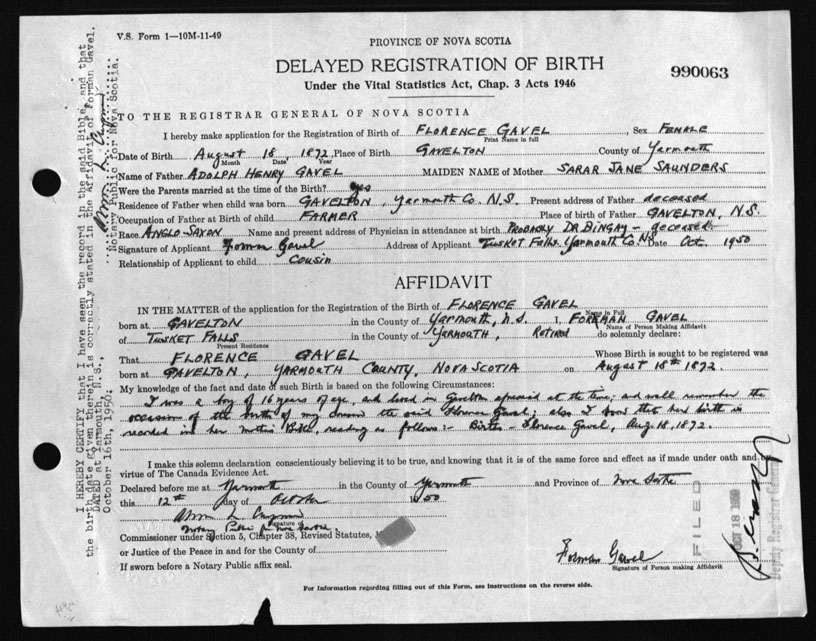 V.S. Form 1—10M-11-49
PROVINCE OF NOVA SCOTIA
DELAYED REGISTRATION OF BIRTH
Under the Vital Statistics Act, Chap. 3 Acts 1946
990063
TO THE REGISTRAR GENERAL OF NOVA SCOTIA
I hereby make application for the Registration of Birth of FLORENCE GAVEL, Sex FEMALE
Print Name in full
Date of Birth August 18, 1872, Place of Birth GAVELTON County of Yarmouth
Month Date Year
Name of Father ADOLPH HENRY GAVEL MAIDEN NAME of Mother SARAR JANE SAUNDERS
Were the Parents married at the time of the Birth? yes
Residence of Father when child was born GAVELTON, Yarmouth Co. N.S. Present address of Father deceased
Occupation of Father at Birth of child FARMER Place of birth of Father GAVELTON, N.S.
Race ANGLO-SAXON Name and present address of Physician in attendance at birth PROBABLY DR BINGAY - deceased
Signature of Applicant Forman Gavel Address of Applicant TUSKET FALLS, Yarmouth Co. NS Date Oct. 1950
Relationship of Applicant to child Cousin
AFFIDAVIT
IN THE MATTER of the application for the Registration of Birth of FLORENCE GAVEL
Name in Full
born at GAVELTON in the County of Yarmouth, N.S. I, FOREMAN GAVEL
Name of Person Making Affidavit
of TUSKET FALLS in the County of YARMOUTH, RETIRED do solemnly declare:
Present Residence
That FLORENCE GAVEL Whose Birth is sought to be registered was
born at GAVELTON, YARMOUTH COUNTY, NOVA SCOTIA on August 18th 1872.
My knowledge of the fact and date of such Birth is based on the following Circumstances:
I was a boy of 16 years of age, and lived in Gavelton aforesaid at the time; and well remember the
occasion of the birth of my cousin the said Florence Gavel; also I know that her birth is
recorded in her mother's Bible, reading as follows:- Births - Florence Gavel, Aug. 18, 1872.
I make this solemn declaration conscientiously believing it to be true, and knowing that it is of the same force and effect as if made under oath and by
virtue of The Canada Evidence Act.
Declared before me at Yarmouth in the County of Yarmouth and Province of Nova Scotia
this 12th day of October 1950
Signature of
Notary Public for Nova Scotia.
Commissioner under Section 5, Chapter 38, Revised Statutes,
or Justice of the Peace in and for the County of
If sworn before a Notary Public affix seal.
Forman Gavel
Signature of Person making Affidavit
For Information regarding filling out of this Form, see Instructions on the reverse side.
I HEREBY CERTIFY that I have seen the record in the said Bible, and that
the birth date given therein is correctly stated in the Affidavit of Forman Gavel.
DATED at Yarmouth, N.S.,
October 16th, 1950.
Notary Public for Nova Scotia.
FILED
OCT 18 1950
Deputy Registrar General